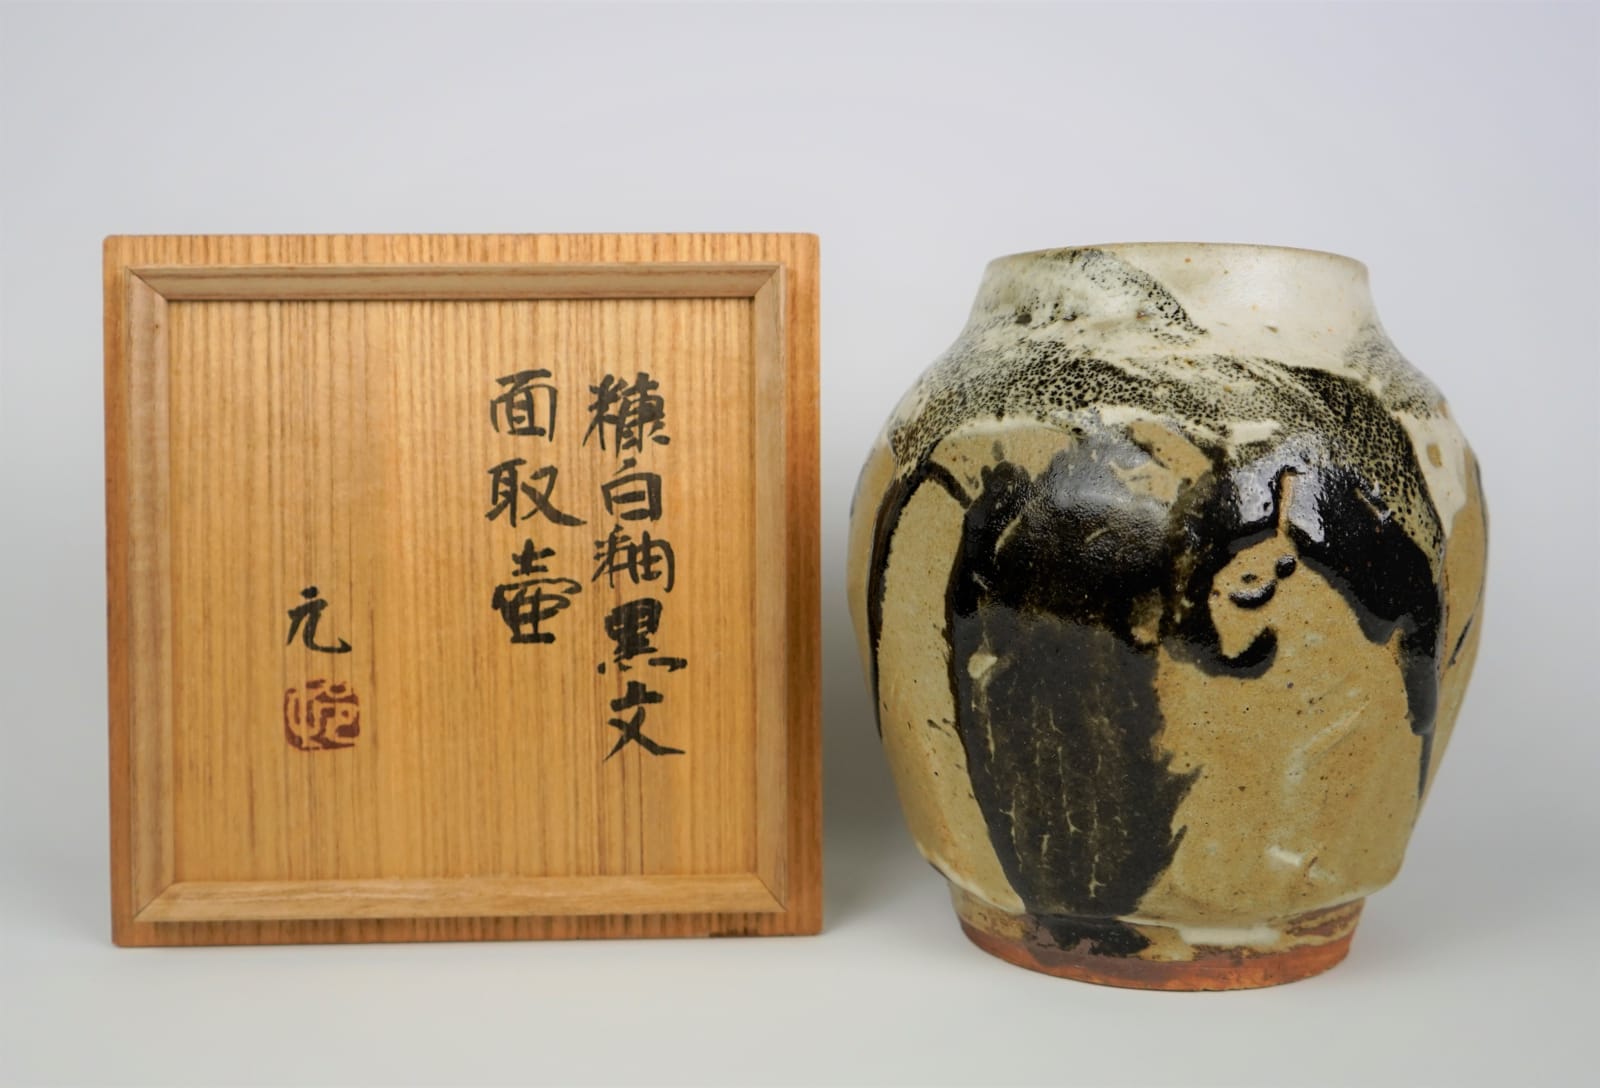 糠白釉黒文
面取壷
元